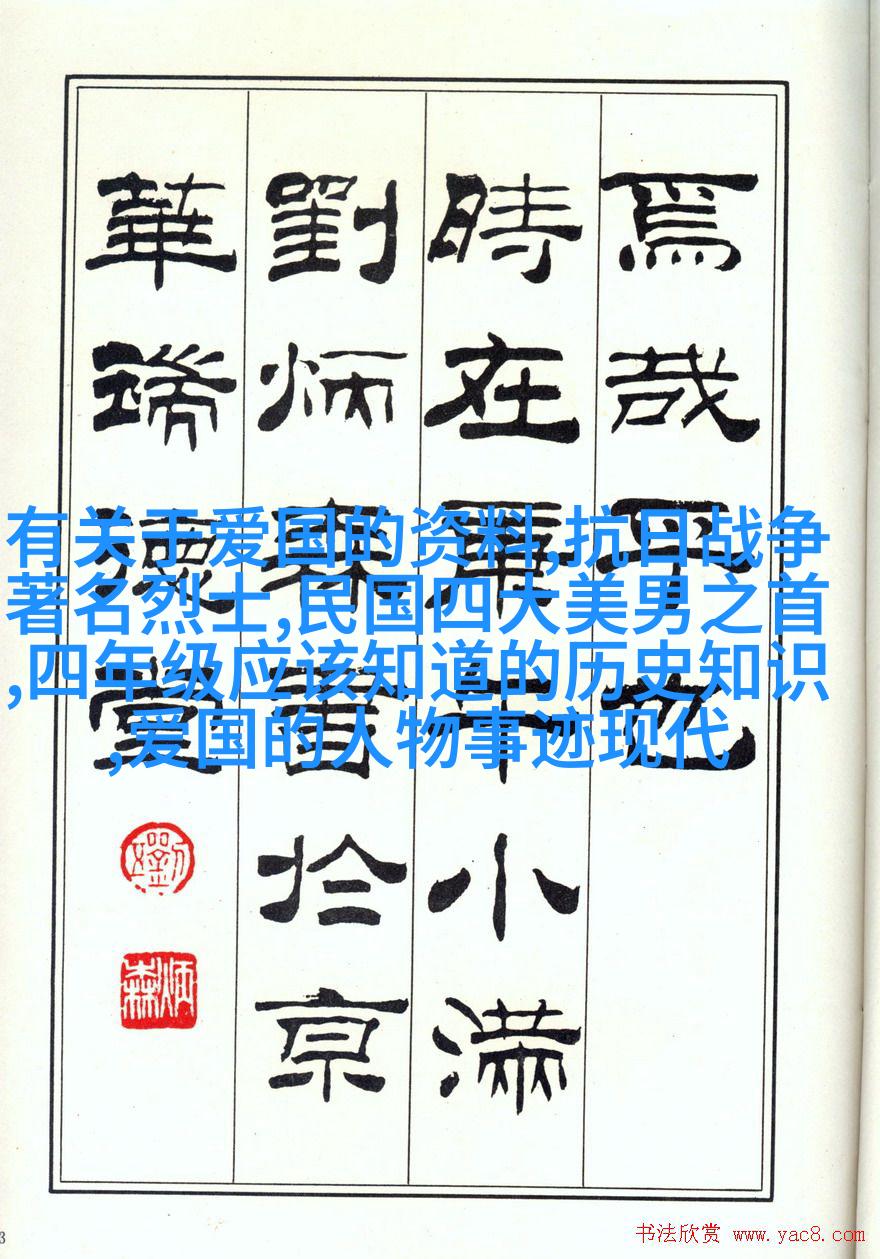 焉哉乎也
時在庚午小滿
劉炳森書於京
華德堂
炳森
有关于爱国的资料,抗日战争
著名烈士,民国四大美男之首
,四年级应该知道的历史知识
,爱国的人物事迹现代
3
书法欣赏 www.yac8.com